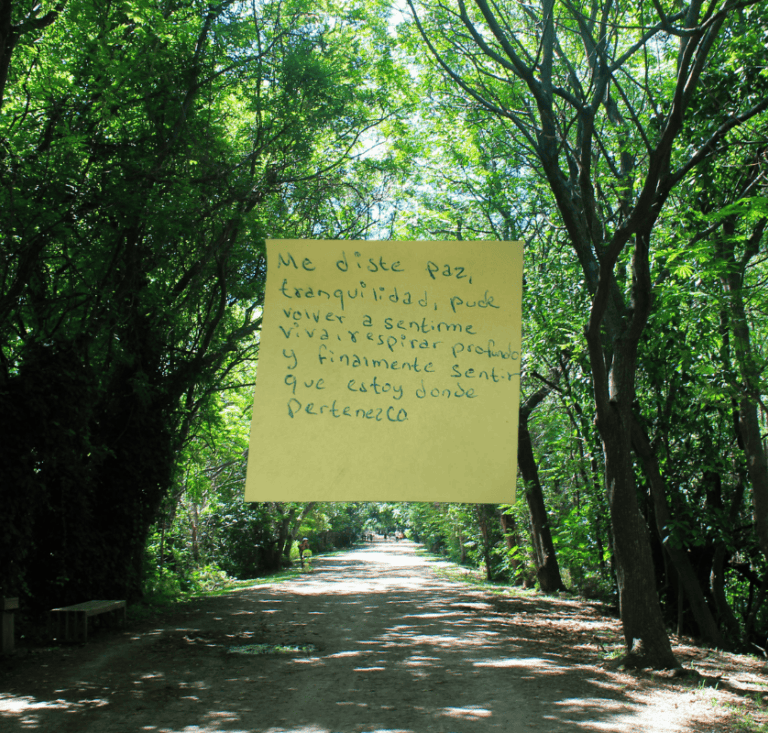 Me diste paz,
tranquilidad, pude
volver a sentirme
viva, respirar profundo
y finalmente sentir
que estoy donde
pertenezco